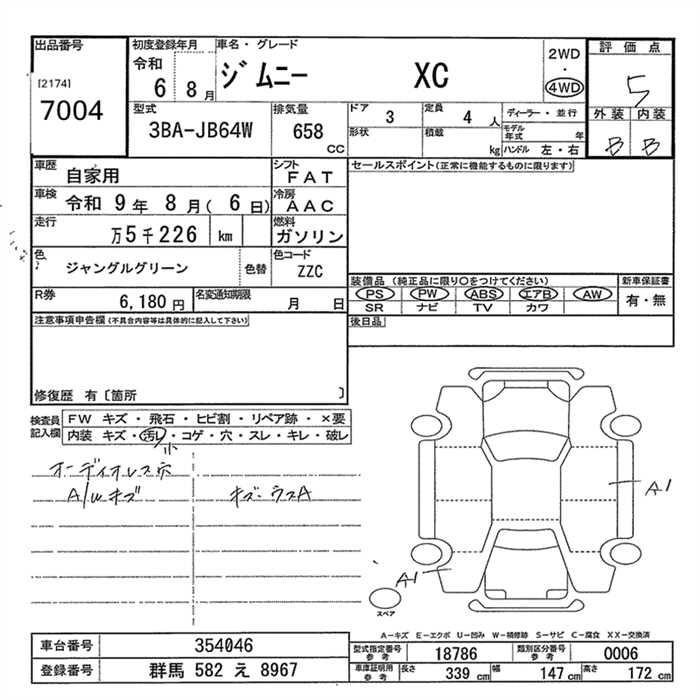 出品番号
[2174]
7004
初度登録年月
令和
6 8月
車名・グレード
ジムニー XC
2WD
・
4WD
評価点
5
外装 内装
B B
型式
3BA-JB64W
排気量
658
CC
ドア
3
定員
4 人
形状
積載
kg
ディーラー・並行
モデル年式 年
ハンドル 左・右
車歴
自家用
シフト
FAT
車検
令和 9年 8月( 6日)
冷房
AAC
走行
万5千226 km
燃料
ガソリン
色
ジャングルグリーン
色替
色コード
ZZC
R券
6,180円
名変通知期限
月 日
セールスポイント(正常に機能するものに限ります)
装備品 (純正品に限り〇をつけてください)
PS PW ABS エアB AW
SR ナビ TV カワ
新車保証書
有・無
後日品
注意事項申告欄(不具合内容等は具体的に記入して下さい)
修復歴 有〔箇所 〕
検査員記入欄
FW キズ・飛石・ヒビ割・リペア跡・×要
内装 キズ・汚レ・コゲ・穴・スレ・キレ・破レ
小
オーディオレス穴
A/Wキズ
キズ・ウスA
A1
A1
スペア
A-キズ E-エクボ U-凹み W-補修跡 S-サビ C-腐食 XX-交換済
車台番号
354046
登録番号
群馬 582 え 8967
型式指定番号
参考
18786
類別区分番号
参考
0006
車庫証明用
参考
長さ
339 cm
幅
147 cm
高さ
172 cm